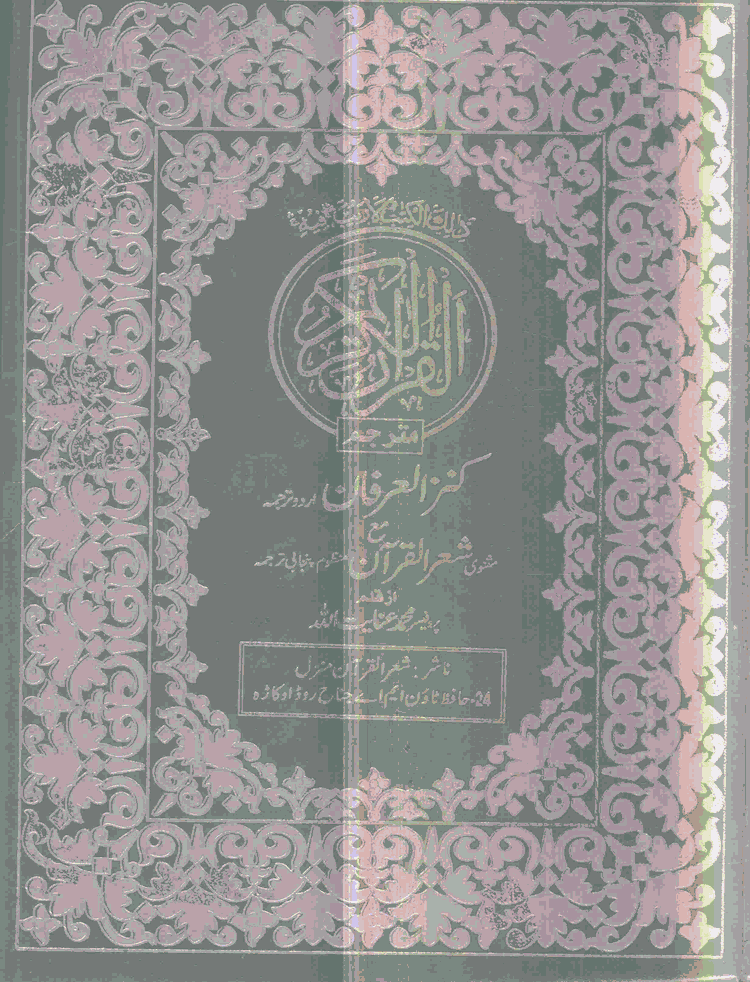 ذٰلِكَ الْكِتٰبُ لَا رَيْبَ فِيْهِ
القرآن الكريم
مترجم
کنز العرفان اردو ترجمہ
مع
مثنوی شعر القرآن منظوم پنجابی ترجمہ
از قلم
پروفیسر محمد عنایت اللہ
ناشر: شعر القرآن منزل
24-حافظ ٹاؤن ایم اے جناح روڈ اوکاڑہ